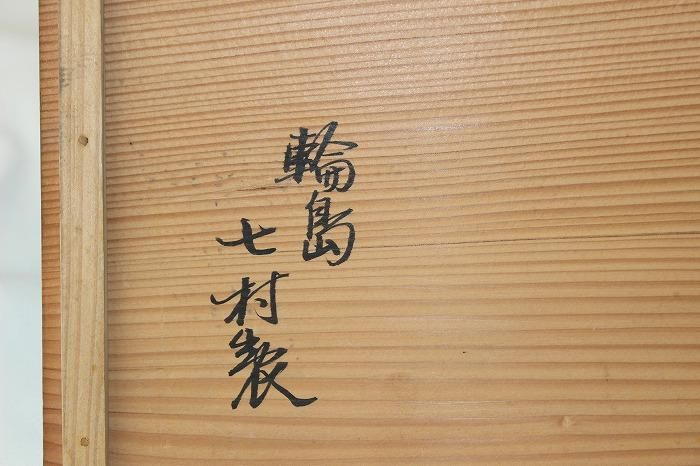 輪島
七村製